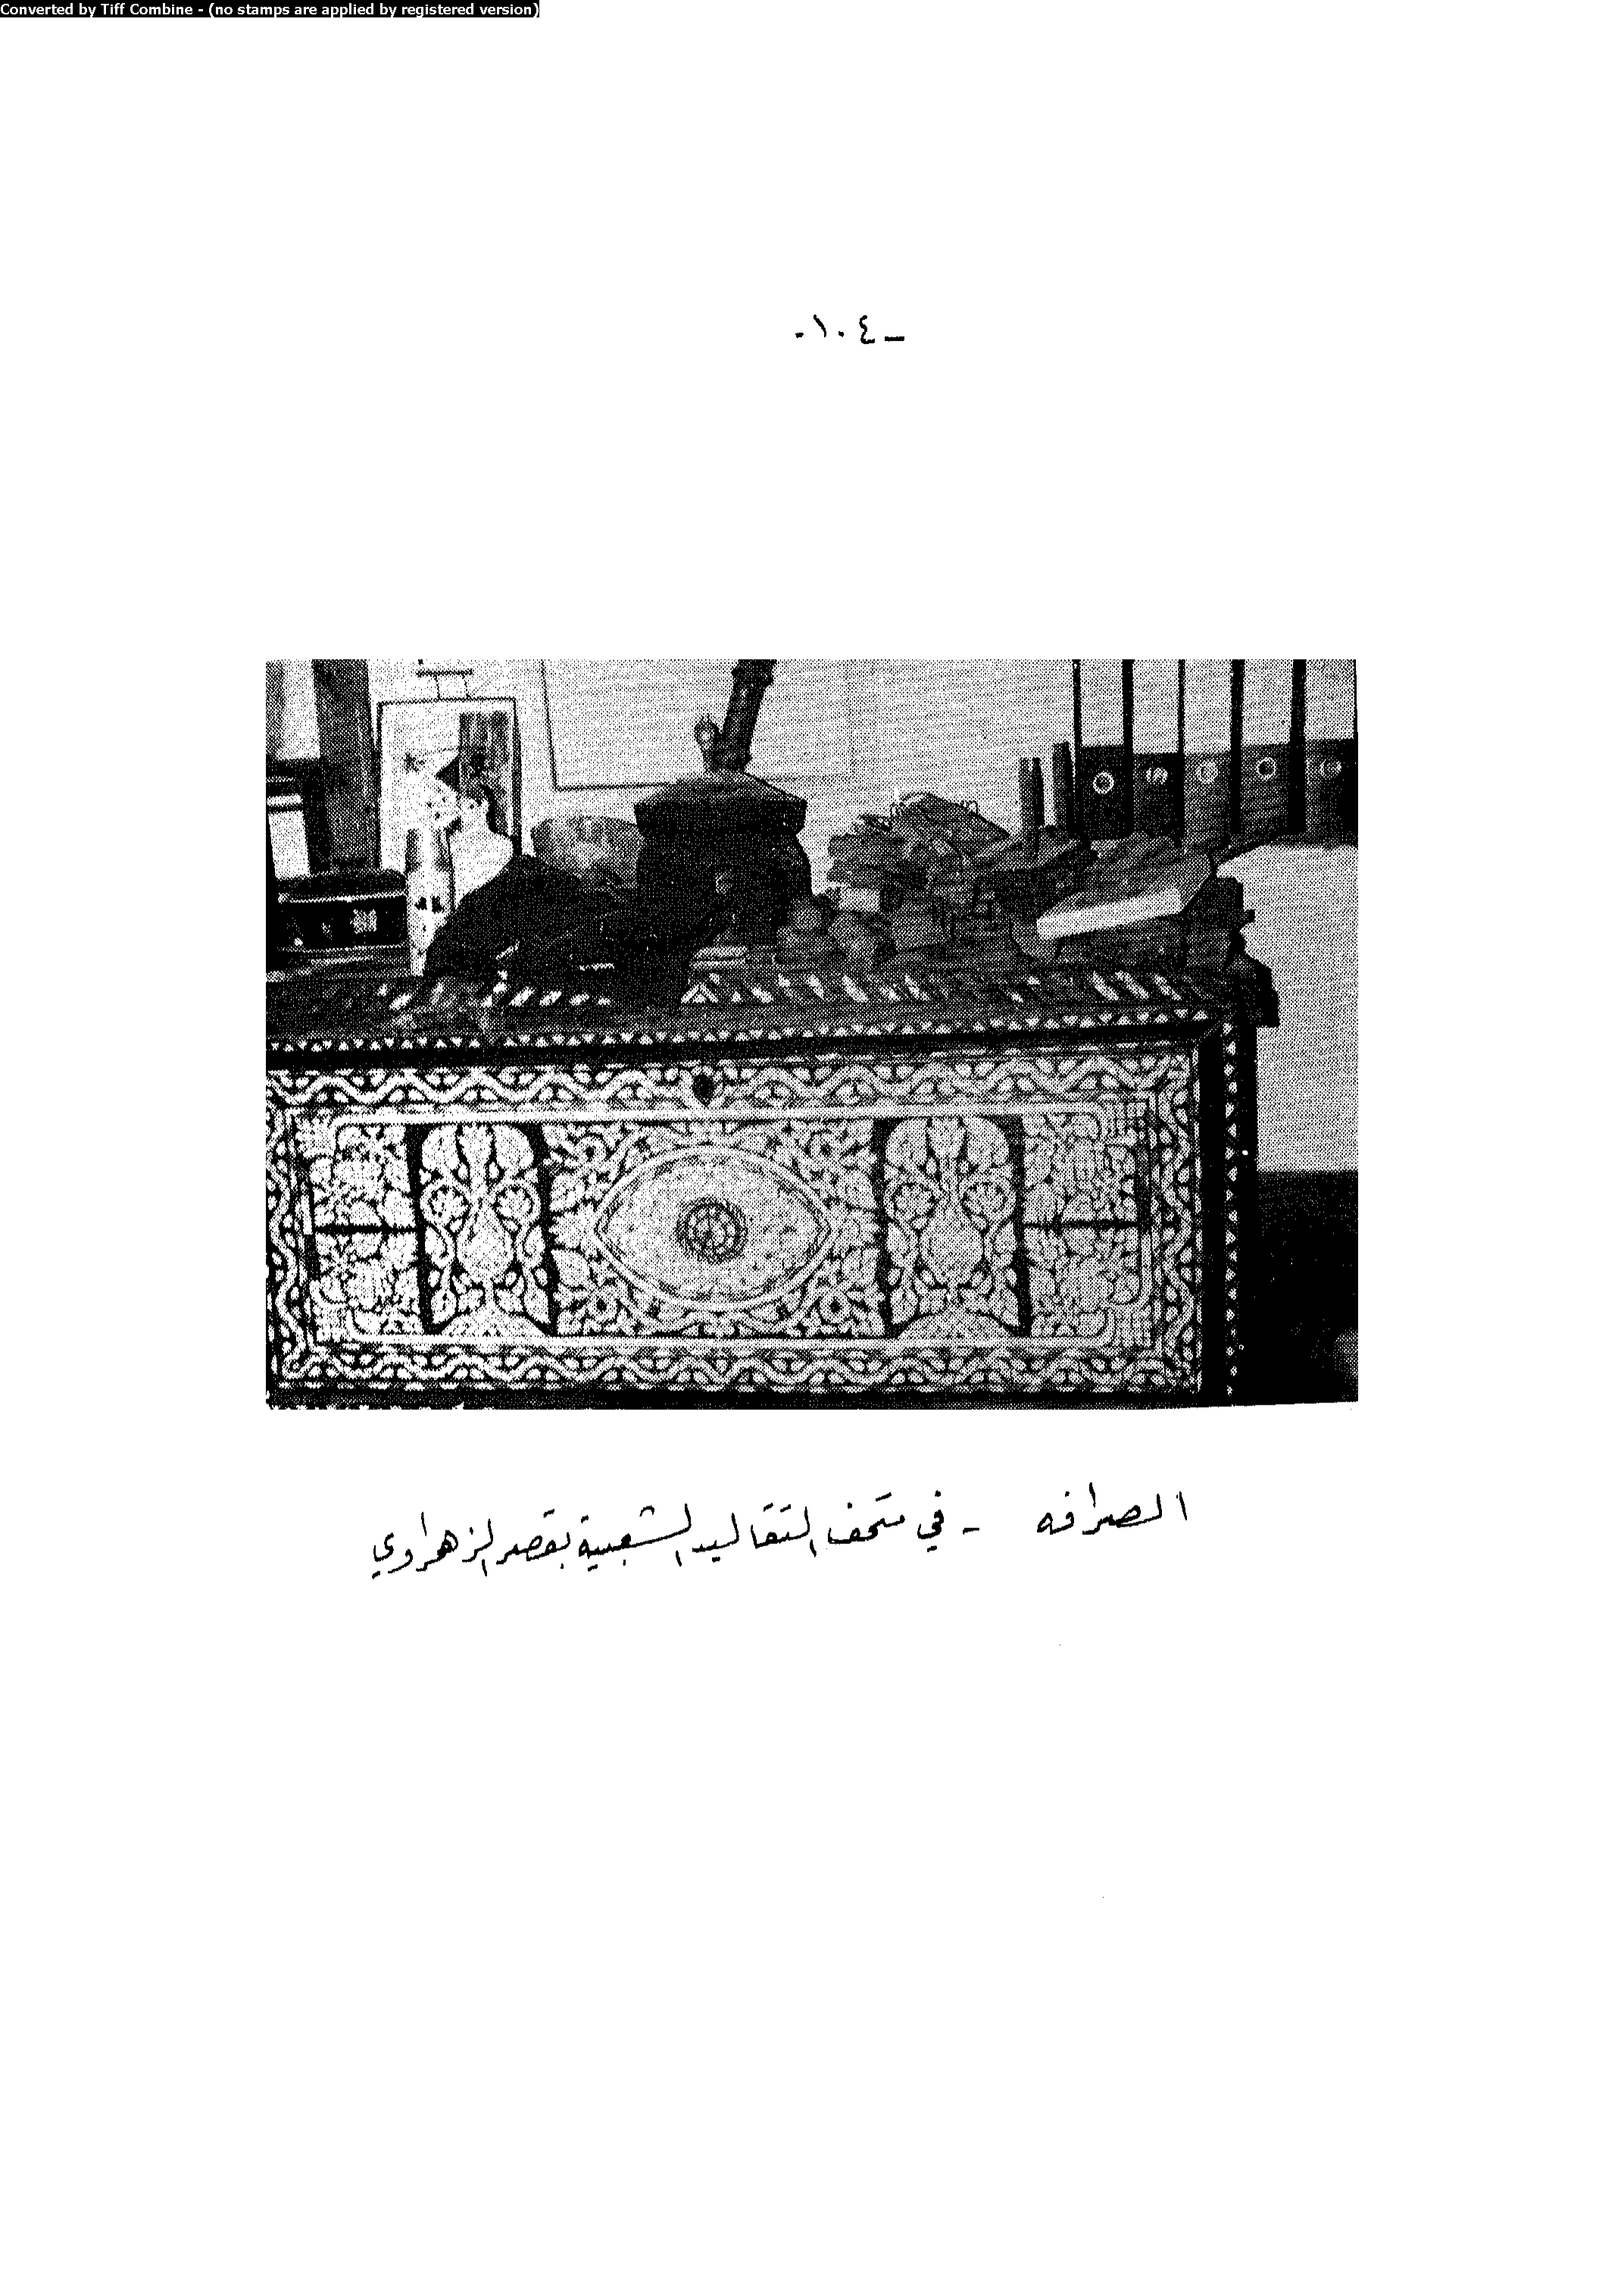 Converted by Tiff Combine - (no stamps are applied by registered version)
-١٠٤-
الصرافه - في متحف التقاليد الشعبية بقصر الزهراوي